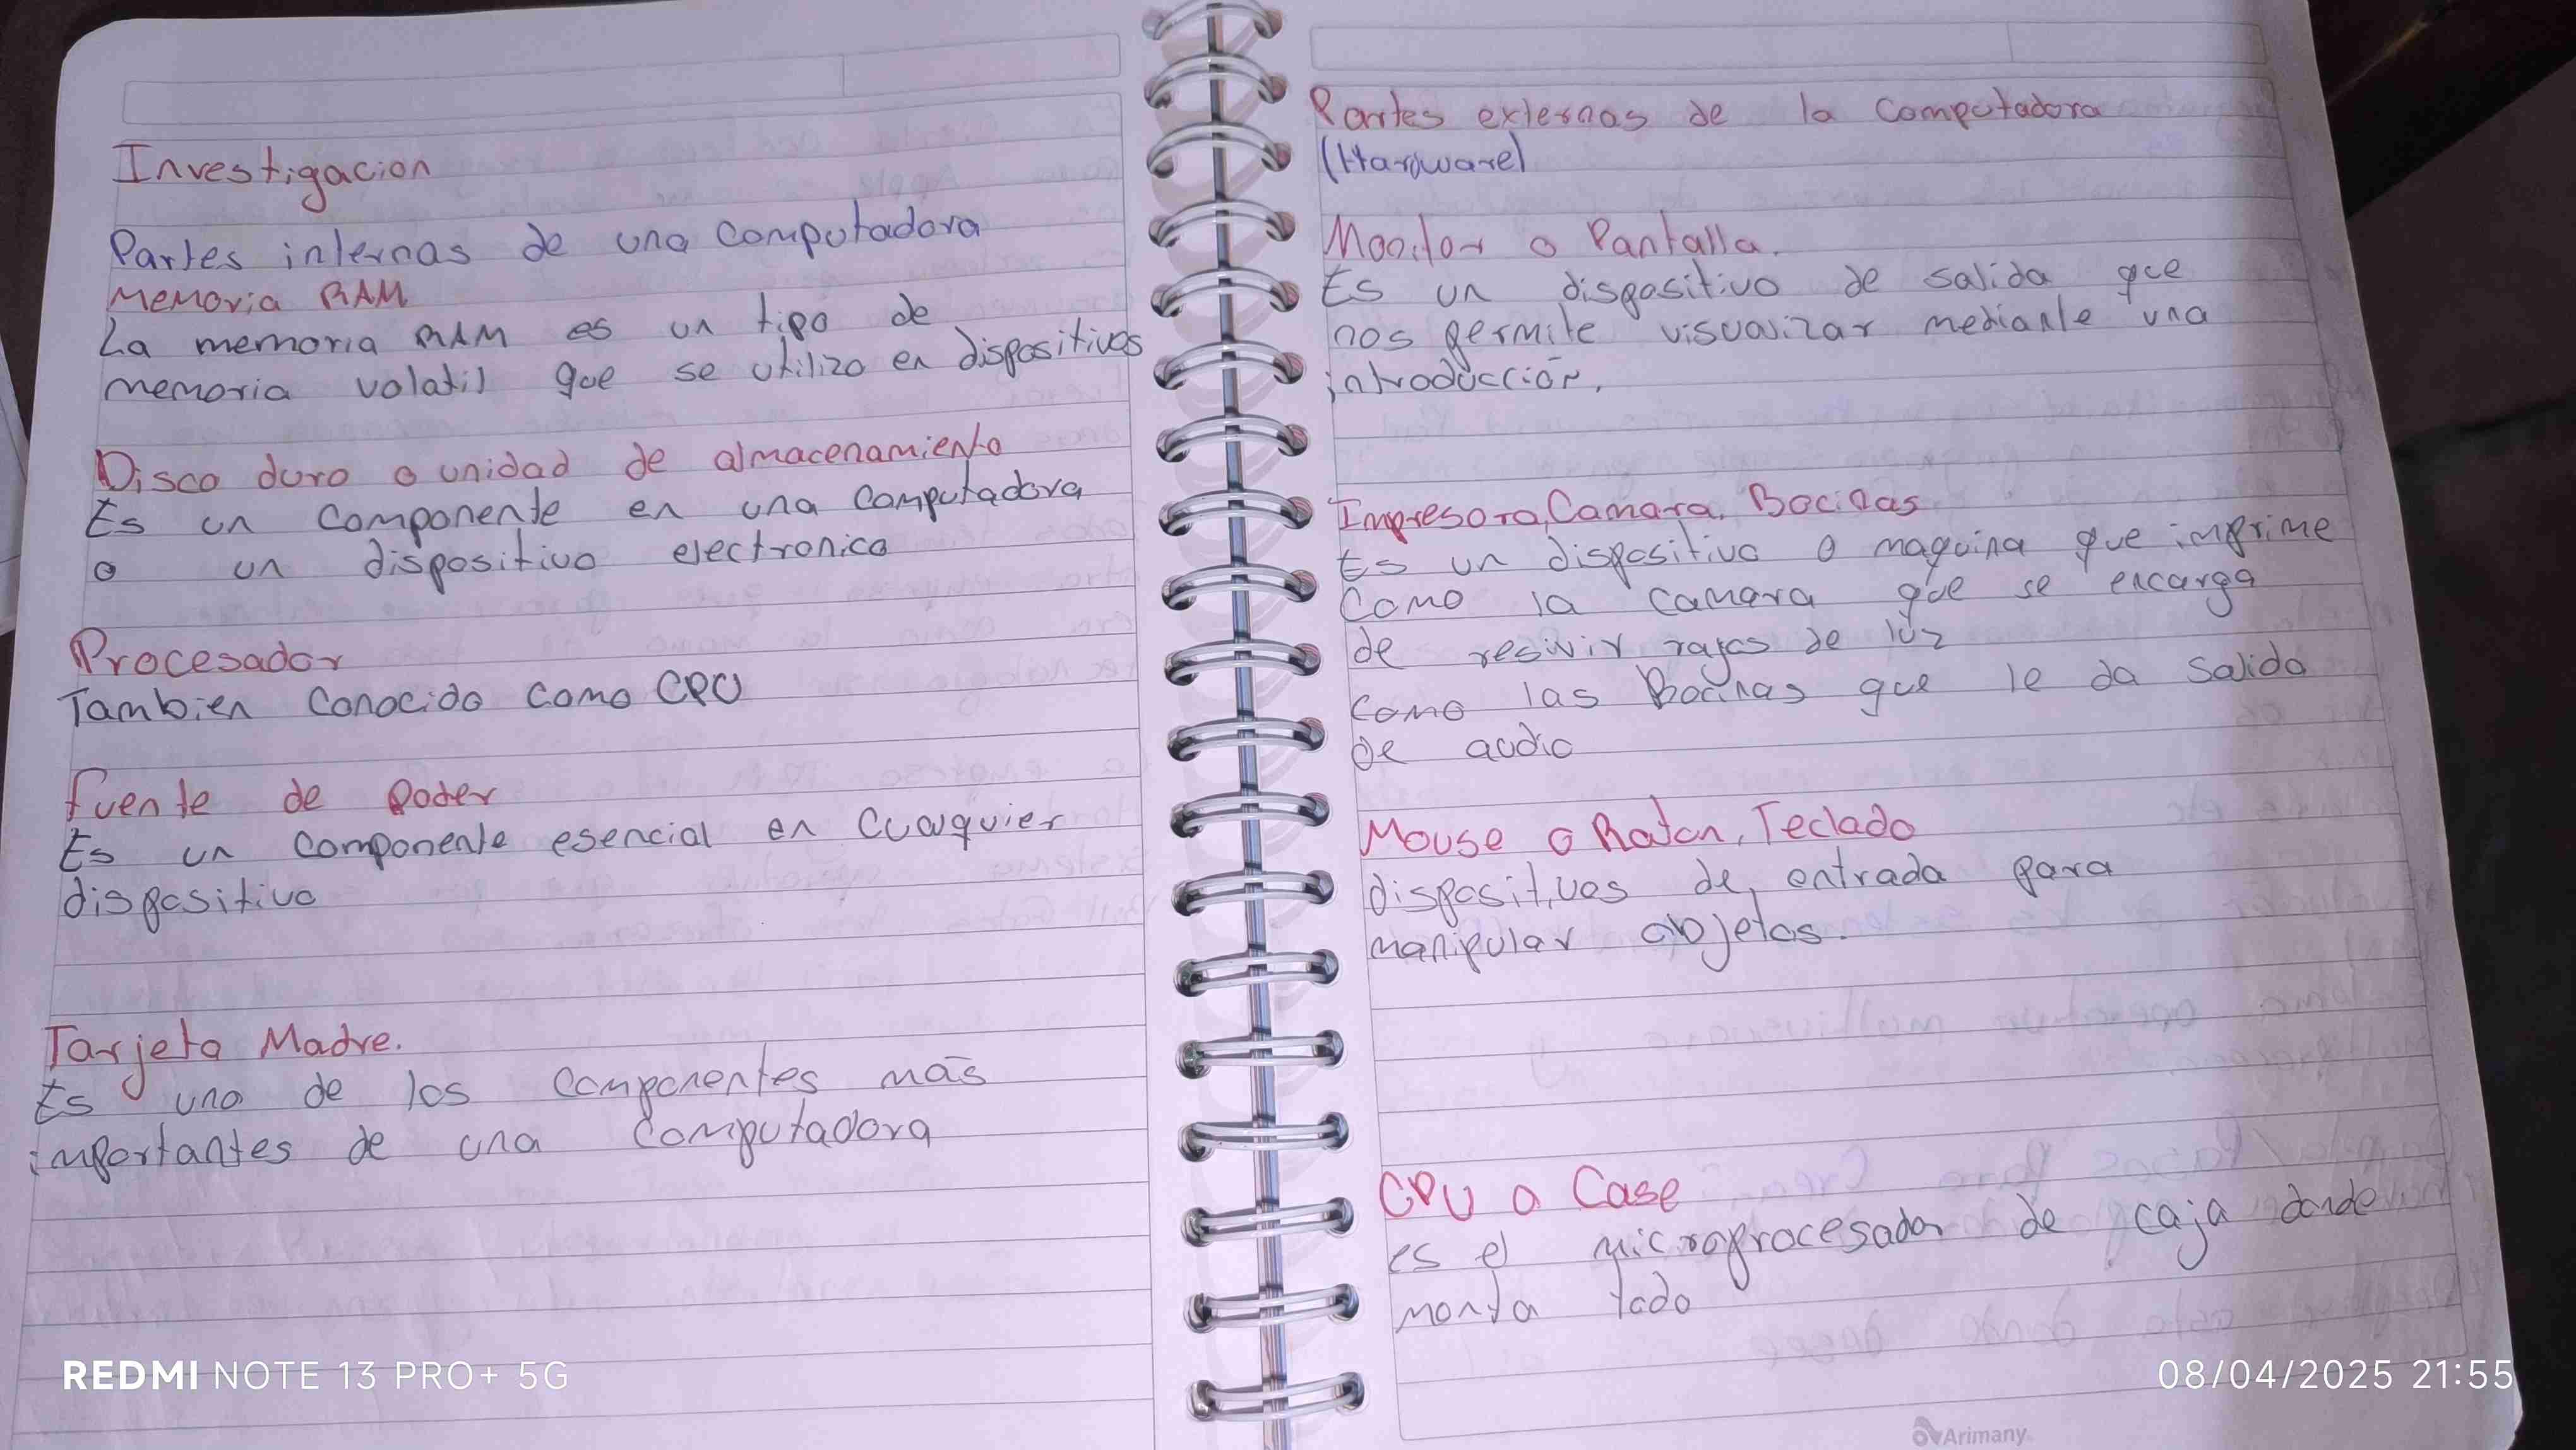 Investigacion
Partes internas de una computadora
Memoria RAM
La memoria RAM es un tipo de
memoria volatil que se utiliza en dispositivos
Disco duro o unidad de almacenamiento
Es un componente en una computadora
o un dispositivo electronico
Procesador
Tambien conocido como CPU
Fuente de Poder
Es un componente esencial en cualquier
dispositivo
Tarjeta Madre.
Es una de los componentes más
importantes de una computadora
REDMI NOTE 13 PRO+ 5G
Partes externas de la computadora
(Hardware)
Monitor o Pantalla.
Es un dispositivo de salida que
nos permite visualizar mediante una
introducción.
Impresora, Camara, Bocinas
Es un dispositivo o maquina que imprime
Como la camara que se encarga
de resivir rayos de luz
Como las Bocinas que le da salida
de audio
Mouse o Raton, Teclado
dispositivos de entrada para
manipular objetos.
CPU o Case
es el microprocesador de caja donde
monta todo
08/04/2025 21:55
Arimany